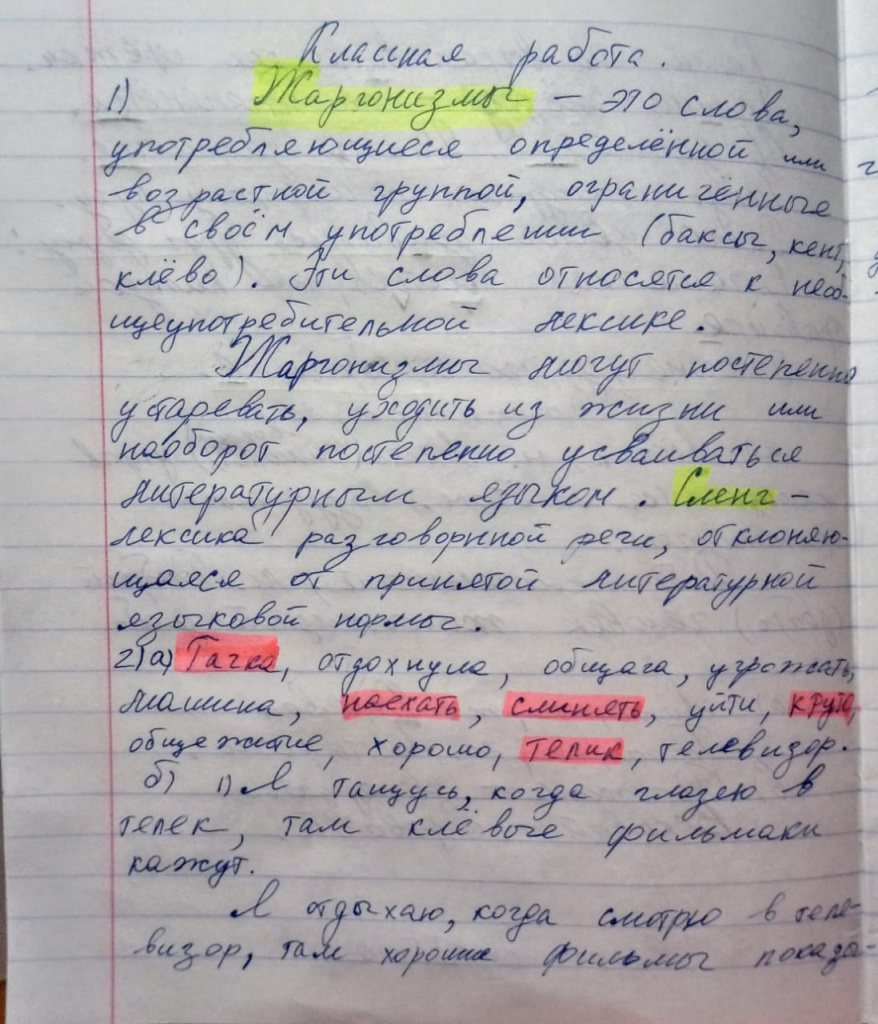 Классная работа.
1) Жаргонизмы – это слова,
употребляющиеся определённой или
возрастной группой, ограничённые
в своём употреблении (баксы, кент,
клёво). Эти слова относятся к необ-
щеупотребительной лексике.
Жаргонизмы могут постепенно
устаревать, уходить из жизни или
наоборот постепенно усваиваться
литературным языком. Сленг –
лексика разговорнной речи, отклоняю-
щаяся от принятой литературной
языковой нормы.
2) а) Тачка, отдохнула, общага, угрожать,
машина, наехать, слинять, уйти, круто,
общежитие, хорошо, телик, телевизор.
б) 1) Я тащусь, когда глазею в
телек, там клёвые фильмаки
кажут.
Я отдыхаю, когда смотрю в теле-
визор, там хорошие фильмы показы-